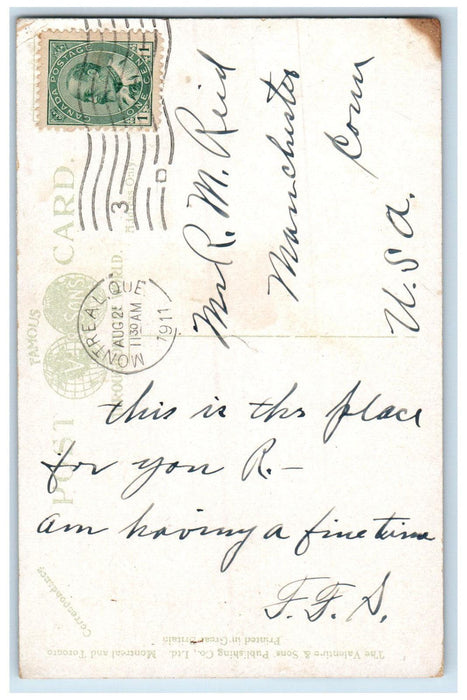 CANADA POSTAGE
1 ONE CENT 1
POST CARD.
FAMOUS
MONTREAL, QUE
AUG 2
1130AM
1911
3
D
Mr R. M. Reid
Manchester
Conn
U.S.A.
this is the place
for you R. —
am having a fine time
F. F. S.
Correspondence
The Valentine & Sons' Publishing Co., Ltd. Montreal and Toronto
Printed in Great Britain